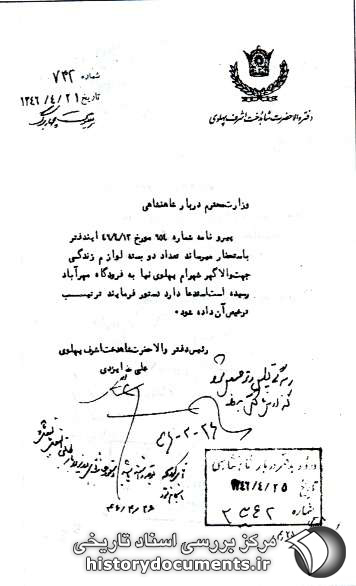 دفتر والاحضرت شاهدخت اشرف پهلوی
شماره ۷۳۲
تاریخ ۱۳۴۶/۴/۲۱
وزارت محترم دربار شاهنشاهی
پیرو نامه شماره ۶۵۴ مورخ ۴۶/۴/۱۳ ایندفتر
باستحضار میرساند تعداد دو بسته لوازم زندگی
جهت والاگهر شهرام پهلوی نیا به فرودگاه مهرآباد
رسیده است استدعا دارد دستور فرمایند ترتیب
ترخیص آن داده شود٠
رئیس دفتر والاحضرت شاهدخت اشرف پهلوی
علی ایزدی
ورود به دفتر دربار شاهنشاهی
تاریخ ۱۳۴۶/۴/۲۵
شماره ۲۳۶۲
مرکز بررسی اسناد تاریخی
historydocuments.ir